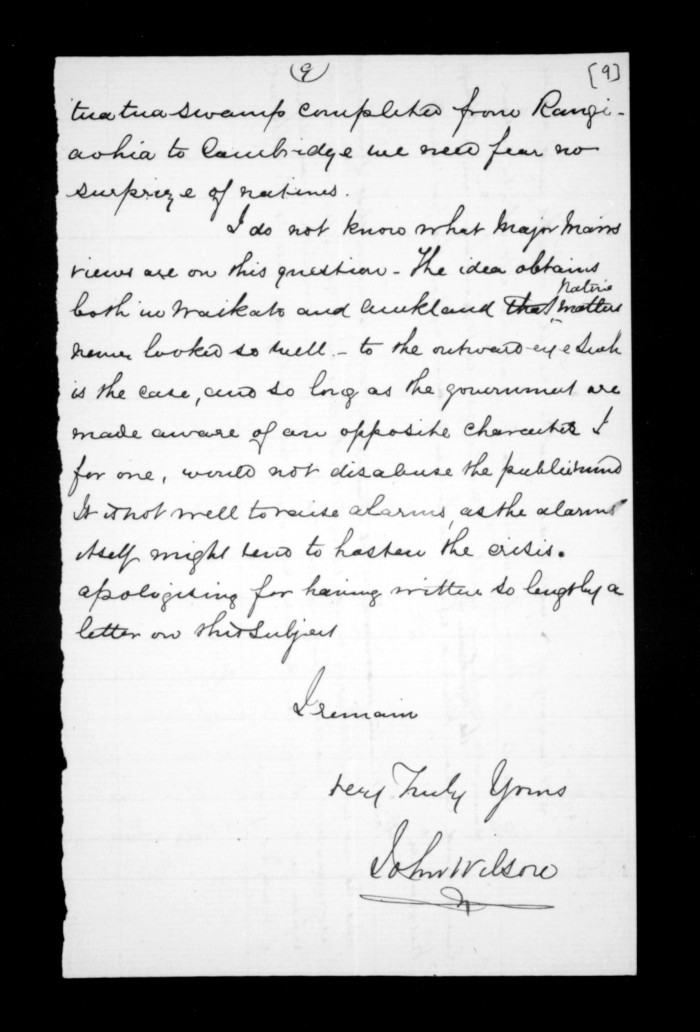 (9) [9]
tua tua swamp completed from Rangi-
aohia to Cambridge we need fear no
surprize of natives.
I do not know what Major Mairs
views are on this question - The idea obtains
both in Waikato and Auckland that Native matters
never looked so well - to the outward eye such
is the case, and so long as the government are
made aware of an opposite character I
for one, would not disabuse the public mind
It is not well to raise alarms, as the alarm
itself might tend to hasten the crisis.
apologising for having written so lengthy a
letter on this subject
I remain
very Truly Yours
John Wilson